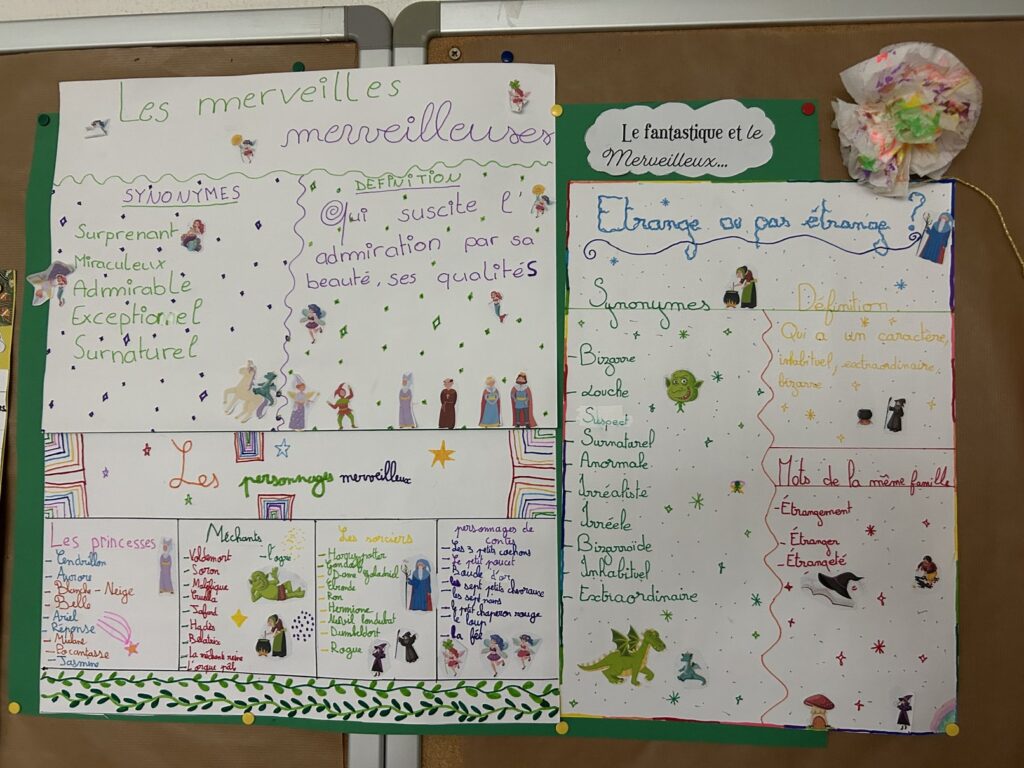 Les merveilles
merveilleuses
SYNONYMES
Surprenant
Miraculeux
Admirable
Exceptionnel
Surnaturel
DEFINITION
Qui suscite l'
admiration par sa
beauté, ses qualités
Les personnages merveilleux
Les princesses
- Cendrillon
- Aurore
- Blanche-Neige
- Belle
- Ariel
- Réponse
- Mulane
- Pocantasse
- Jasmine
Méchants
- Voldemort
- Soron
- Maléfique
- Cruella
- Jafard
- Hadès
- Belatrix
- La méchant reine
- L'orque pâle
- l'ogre
Les sorciers
- Harry potter
- Gandalf
- Dame Galadriel
- Elronde
- Ron
- Hermione
- Nevil Londubat
- Dumbeldort
- Rogue
personnages de
contes
- Les 3 petits cochons
- Le petit poucet
- Boucle d'or
- les sept petits chevraux
- les sept nains
- le petit chaperon rouge
- le loup
- la fée
Le fantastique et le
Merveilleux...
Etrange ou pas étrange ?
Synonymes
- Bizarre
- Louche
- Suspect
- Surnaturel
- Anormale
- Irréaliste
- Irréele
- Bizarroïde
- Inhabituel
- Extraordinaire
Définition
Qui a un caractère,
inhabituel, extraordinaire,
bizarre
Mots de la même famille
- Étrangement
- Étranger
- Étrangeté